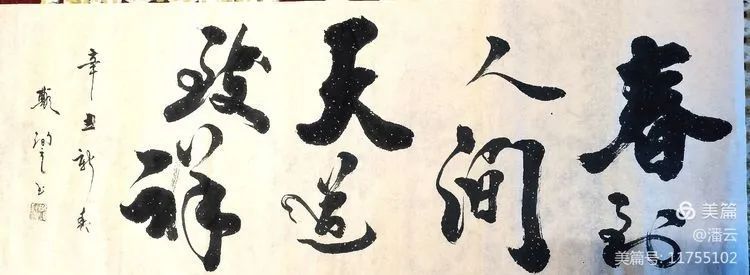 春到
人间
天道
致祥
辛丑新春
美篇
@潘云
美篇号: 11755102